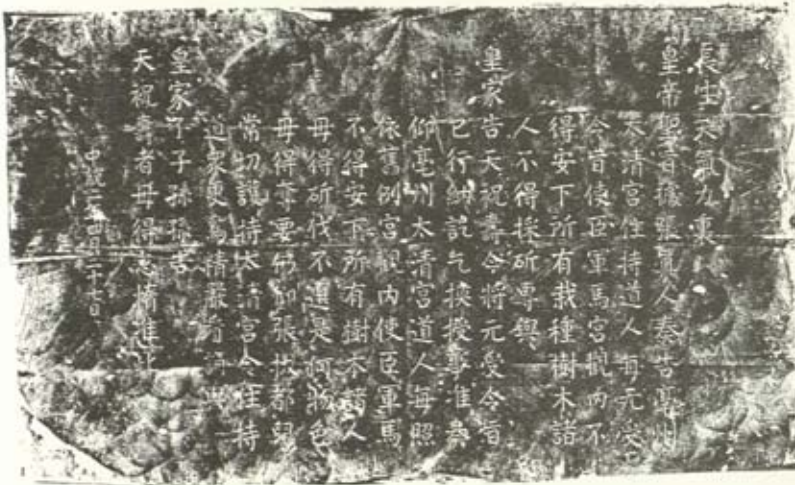 長生天氣力裏
皇帝聖旨據張真人奏告亳州
太清宮住持道人每元受
令旨使臣軍馬宮觀內不
得安下所有栽種樹木諸
人不得採斫專與
皇家告天祝壽今將元受令旨
已行納訖乞換授事准奏
仰亳州太清宮道人每照
依舊例宮觀內使臣軍馬
不得安下所有樹木諸人
毋得斫伐不選是何物色
毋得奪要仍仰張拔都兒
常切護持太清宮令住持
道眾更為精嚴看誦與
皇家子子孫孫告
天祝壽者毋得怠惰准此
中統二年四月二十七日